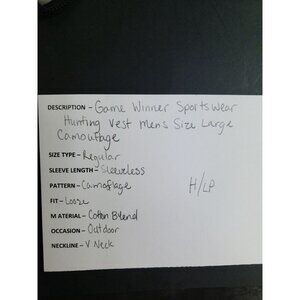 DESCRIPTION - Game Winner Sportswear
Hunting Vest Men's Size Large
Camouflage
SIZE TYPE - Regular
SLEEVE LENGTH - Sleeveless
PATTERN - Camoflage
FIT - Loose
MATERIAL - Cotton Blend
OCCASION - Outdoor
NECKLINE - V Neck
H/LP